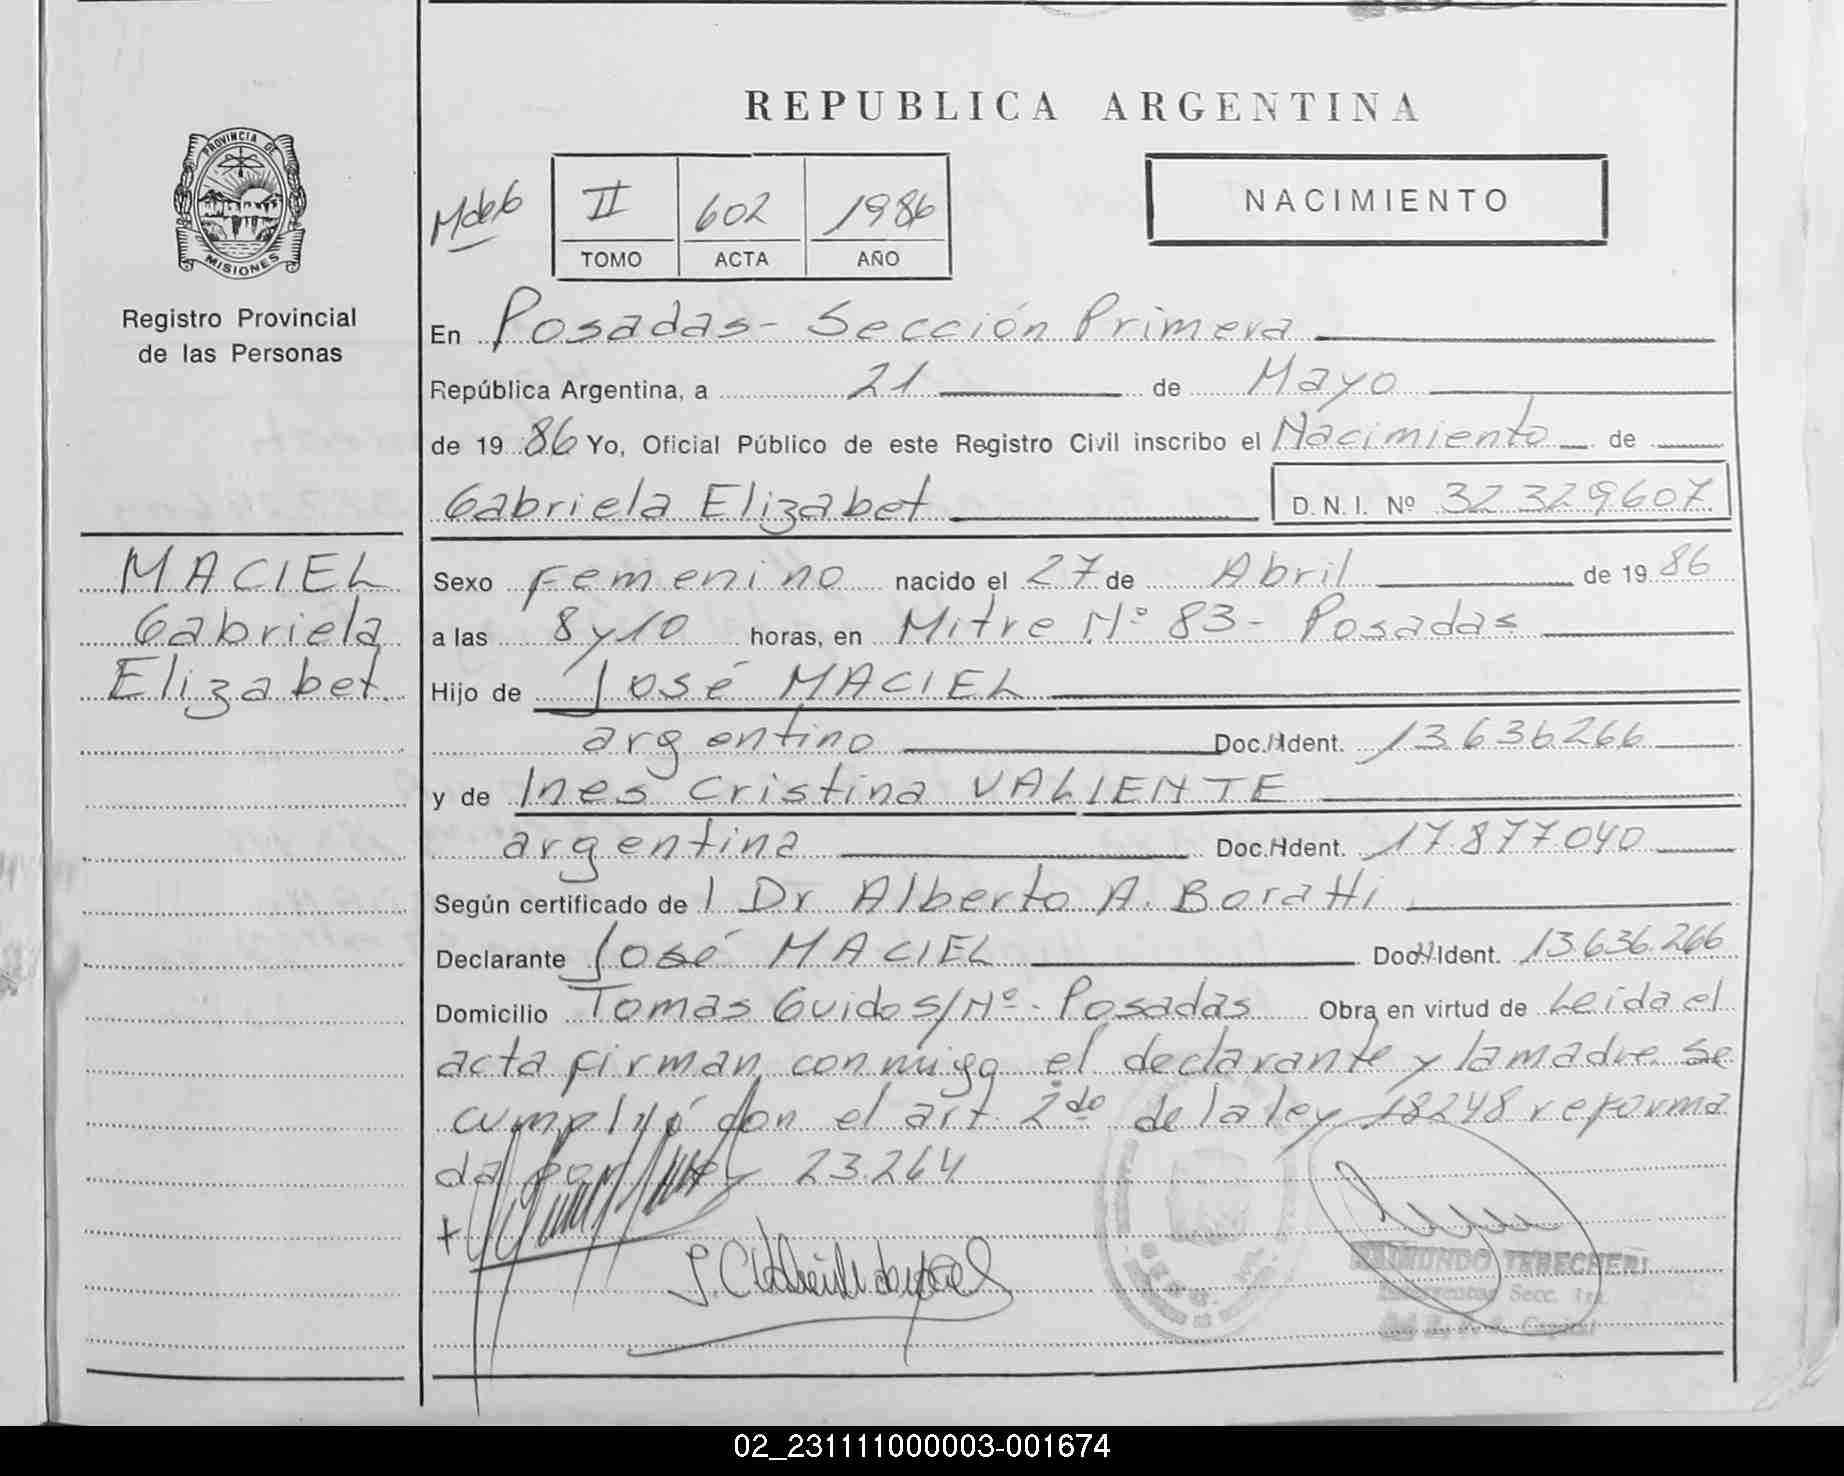 REPUBLICA ARGENTINA
PROVINCIA DE
MISIONES
Registro Provincial
de las Personas
II 602 1986
TOMO ACTA AÑO
NACIMIENTO
En Posadas - Sección Primera
República Argentina, a 21 de Mayo
de 19 86 Yo, Oficial Público de este Registro Civil inscribo el Nacimiento de
Gabriela Elizabet D. N. I. Nº 32329607
MACIEL
Gabriela
Elizabet
Sexo Femenino nacido el 27 de Abril de 19 86
a las 8 y 10 horas, en Mitre Nº 83 - Posadas
Hijo de José MACIEL
argentino Doc. Ident. 13.636266
y de Ines Cristina VALIENTE
argentina Doc. Ident. 17.877040
Según certificado de l Dr Alberto A. Boratti
Declarante José MACIEL Doc. Ident. 13.636.266
Domicilio Tomas Guido S/Nº - Posadas Obra en virtud de Leida el
acta firman conmigo el declarante y la madre se
cumplió con el art. 2do de la ley 18248 reforma
da por ley 23.264
RAIMUNDO TERECHERI
Secc. 1ra.
Capital
02_231111000003-001674